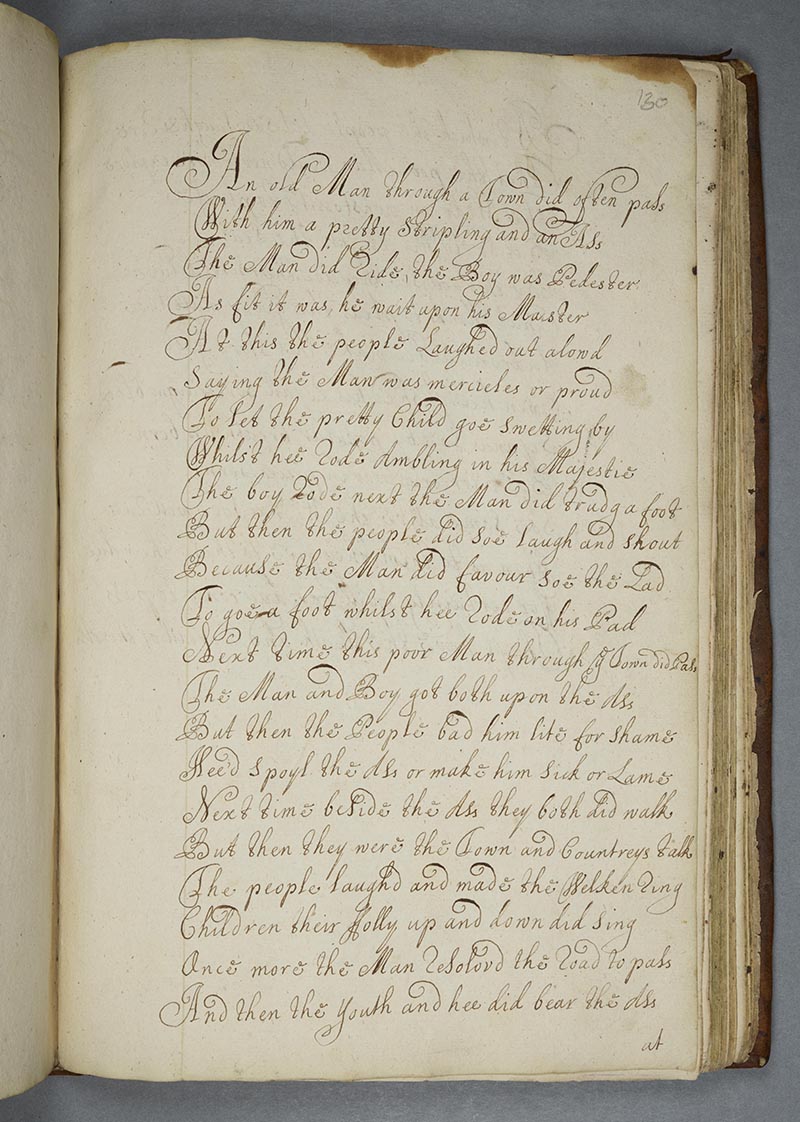 130
An old Man through a Town did often pass
With him a pretty Stripling and an Ass
The Man did Ride, the Boy was Pedester
As fit it was, he wait upon his Master
At this the people Laughed out alowd
Saying the Man was merciles or proud
To let the pretty Child goe swetting by
Whilst hee Rode Ambling in his Majestie
The boy Rode next the Man did trudg a foot
But then the people did soe laugh and shout
Because the Man did favour soe the Lad
To goe a foot whilst hee Rode on his Pad
Next time this poor Man through ye Town did Pass
The Man and Boy got both upon the Ass
But then the People bad him lite for shame
Hee'd spoyl the Ass or make him sick or Lame
Next time beside the Ass they both did walk
But then they were the Town and Countreys talk
The people laughd and made the Welken Ring
Children their ffolly up and down did sing
Once more the Man Resolovd the Road to pass
And then the Youth and hee did bear the Ass
at